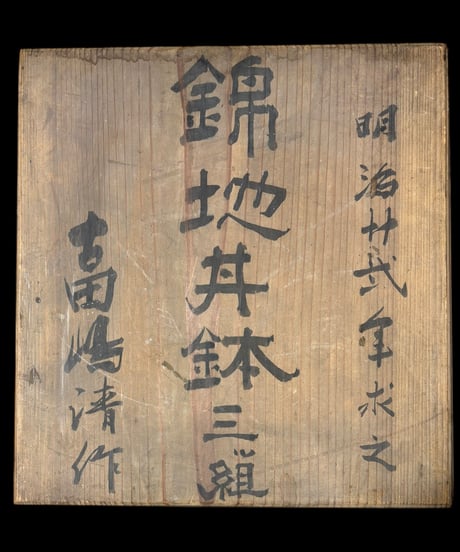 明治廿弐年求之
錦地丼鉢三組
古田嶋清作